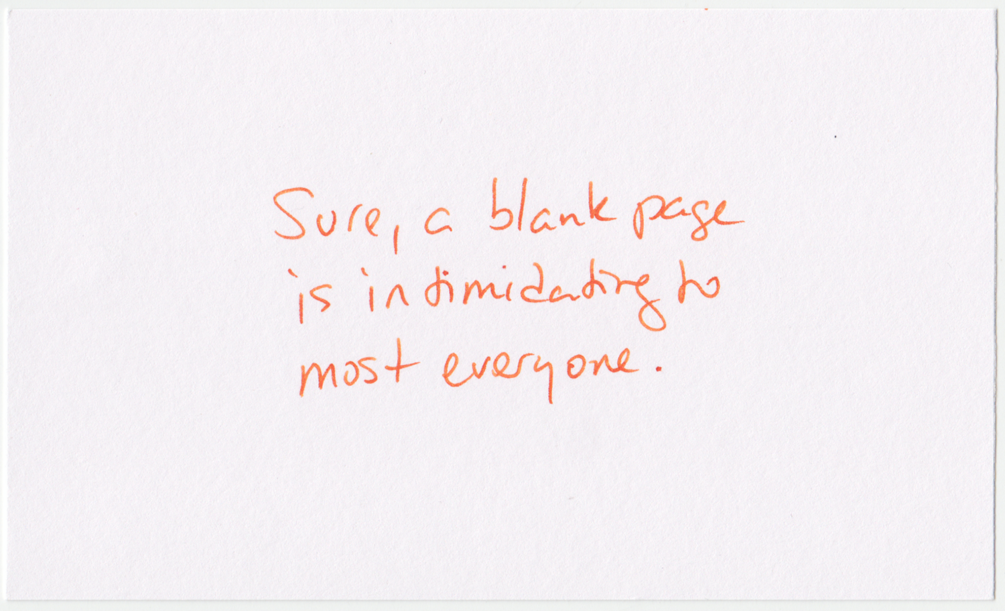 Sure, a blank page
is intimidating to
most everyone.